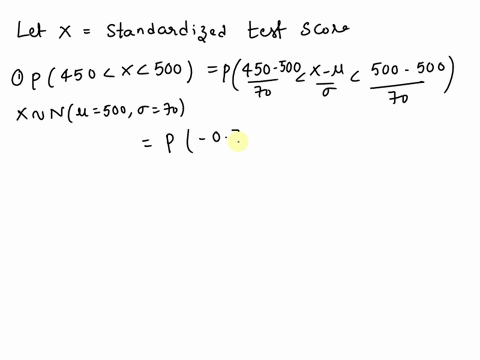 Let X = standardized test score
① P(450 < x < 500) = P(450-500/70 < x-μ/σ < 500-500/70)
X ~ N(μ=500, σ=70)
= P(-0.7